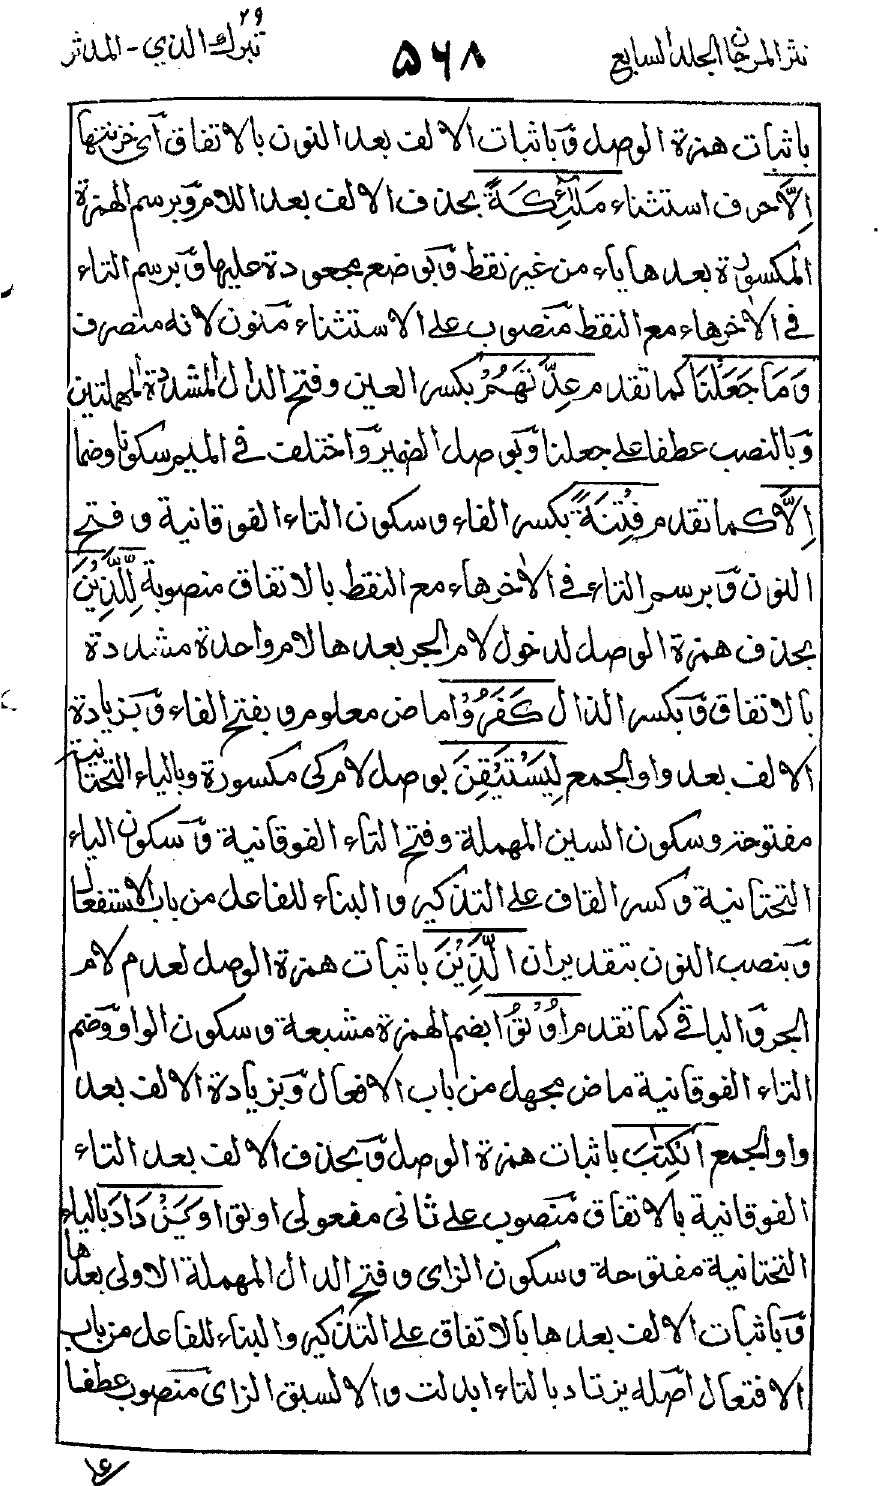 نثر المرجان الجلد السابع ٥٦٨ تبرك الذي ٢٩ - المدثر
باثبات همزة الوصل وَباثبات الالف بعد النون بالاتفاق اَى خزنتها
اِلَّا حرف استثناء مَلٰٓئِكَةً بحذف الالف بعد اللام وَبرسم الهمزة
المكسورة بعدها ياء من غير نقط وَبوضع مجعودة عليها وَبرسم التاء
فى الاٰخر هاء مع النقط مَنصوب على الاستثناء مَنون لانه منصرف
وَمَا جَعَلْنَا كما تقدم عِدَّتَهُمْ بكسر العين وفتح الدال المشددة المهملتين
وَبالنصب عطفا على جعلنا وَبوصل الضمير وَاختلف فى الميم سكونا وضما
اِلَّا كما تقدم فِتْنَةً بكسر الفاء وسكون التاء الفوقانية وفتح
النون وَبرسم التاء فى الاٰخر هاء مع النقط بالاتفاق منصوبة لِلَّذِيْنَ
بحذف همزة الوصل لدخول لام الجر بعدها لام واحدة مشددة
بالاتفاق وَبكسر الذال كَفَرُوْا ماض معلوم وبفتح الفاء وَبزيادة
الالف بعد واو الجمع لِيَسْتَيْقِنَ بوصل لام كى مكسورة وبالياء التحتانية
مفتوحة وسكون السين المهملة وفتح التاء الفوقانية وَسكون الياء
التحتانية وَكسر القاف على التذكير والبناء للفاعل من باب الاستفعال
وَبنصب النون بتقدير ان الَّذِيْنَ باثبات همزة الوصل لعدم لام
الجر وَالباقى كما تقدم اُوْتُوْا بضم الهمزة مشبعة وسكون الواو وَضم
التاء الفوقانية ماض مجهل من باب الافعال وَبزيادة الالف بعد
واو الجمع الْكِتٰبَ باثبات همزة الوصل وَبحذف الالف بعد التاء
الفوقانية بالاتفاق مَنصوب على ثانى مفعولى اوتوا وَيَزْدَادَ بالياء
التحتانية مفتوحة وسكون الزاى وفتح الدال المهملة الاولى بعدها
وَباثبات الالف بعدها بالاتفاق على التذكير والبناء للفاعل من باب
الافتعال اصله يزتاد بالتاء ابدلت دالا لسبق الزاى مَنصوب عطفا